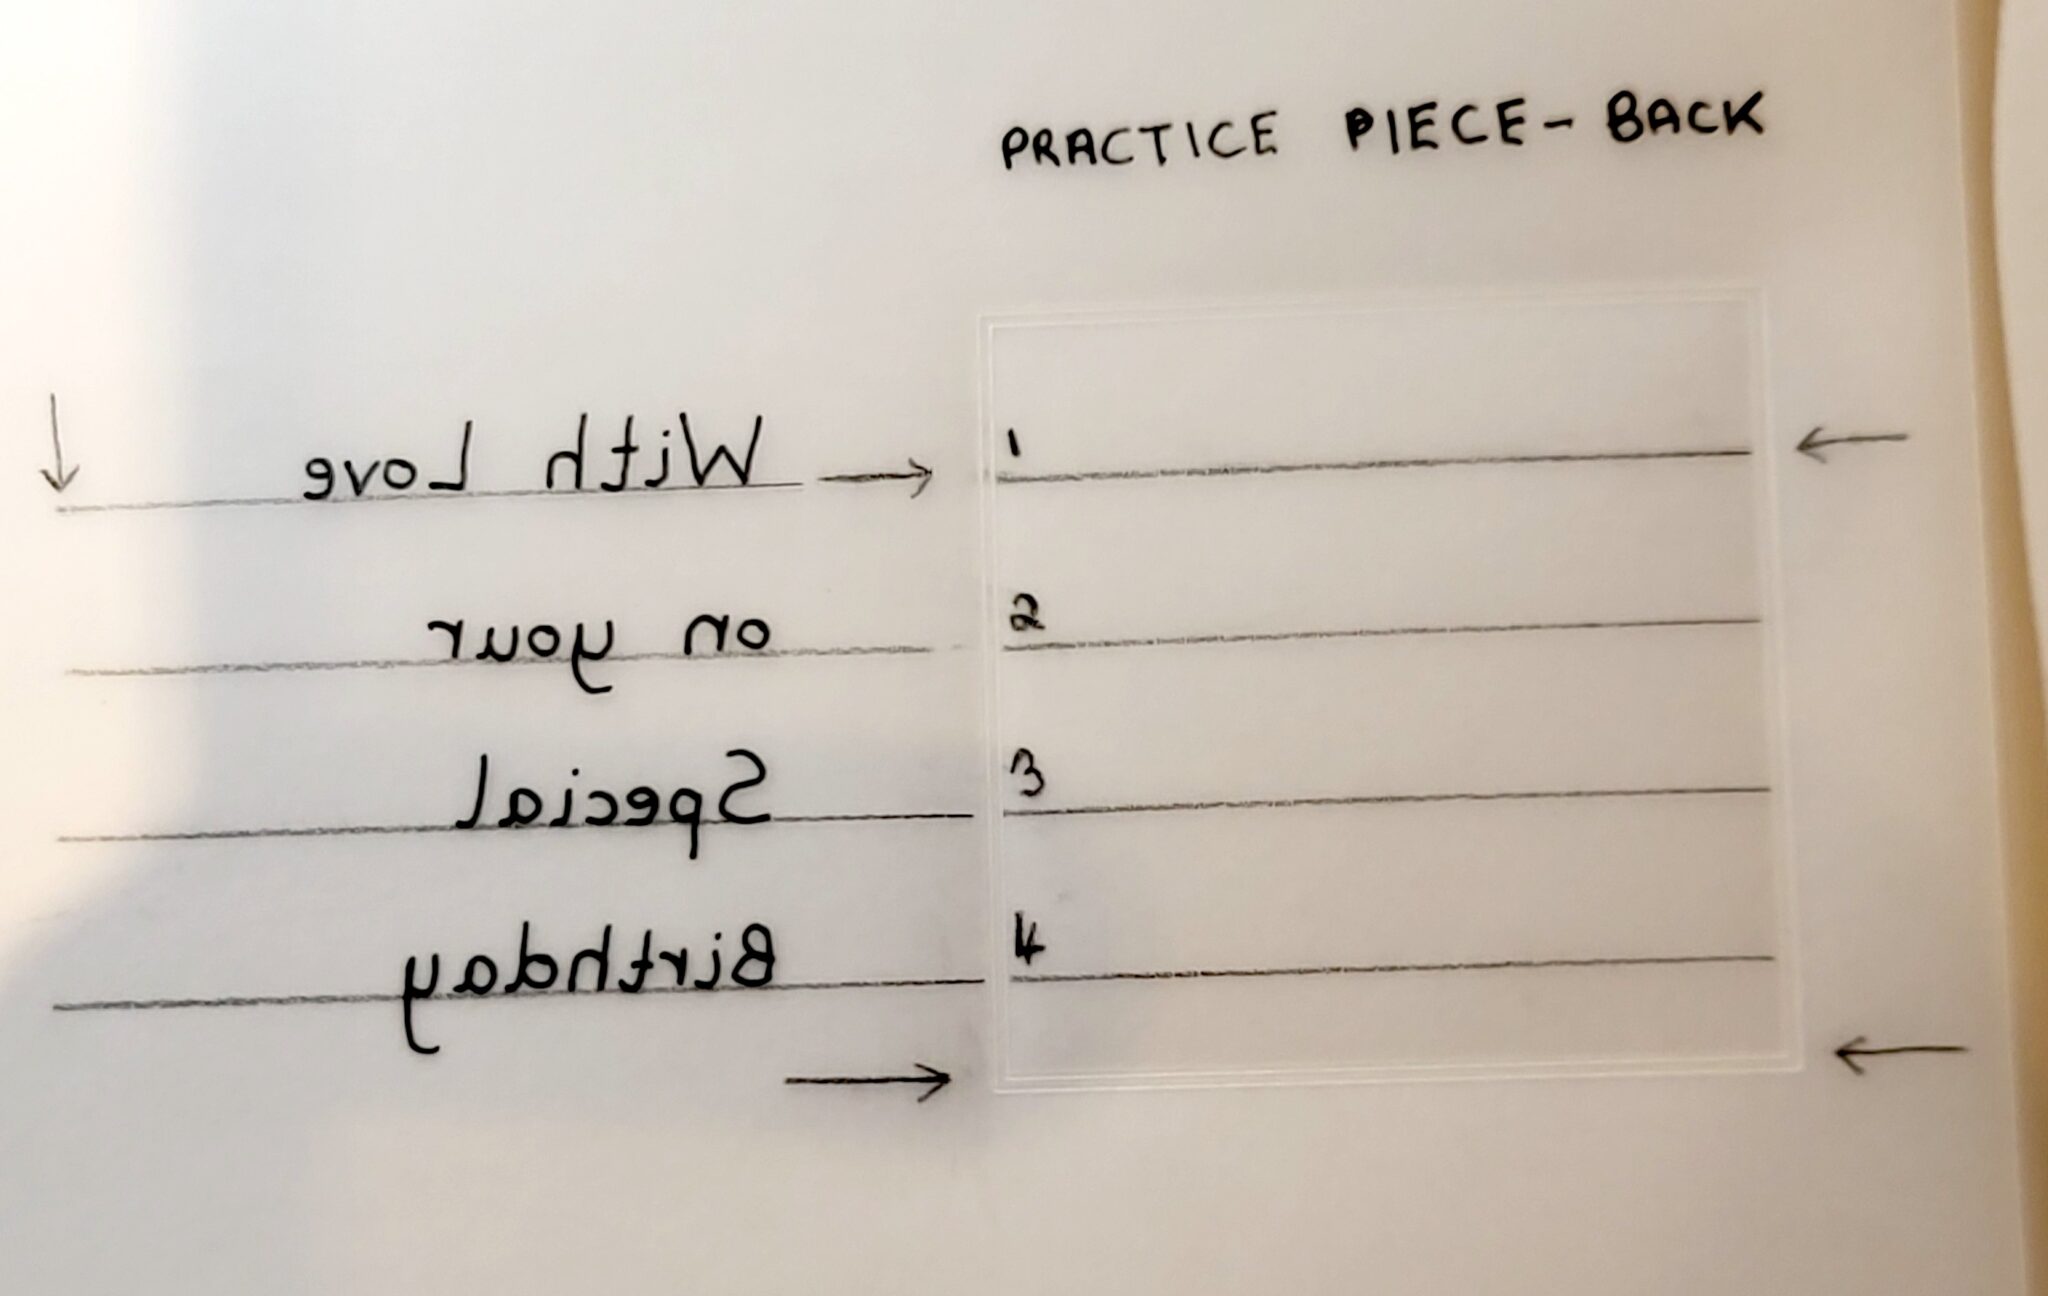 PRACTICE PIECE - BACK
With Love
on your
Special
Birthday
1
2
3
4